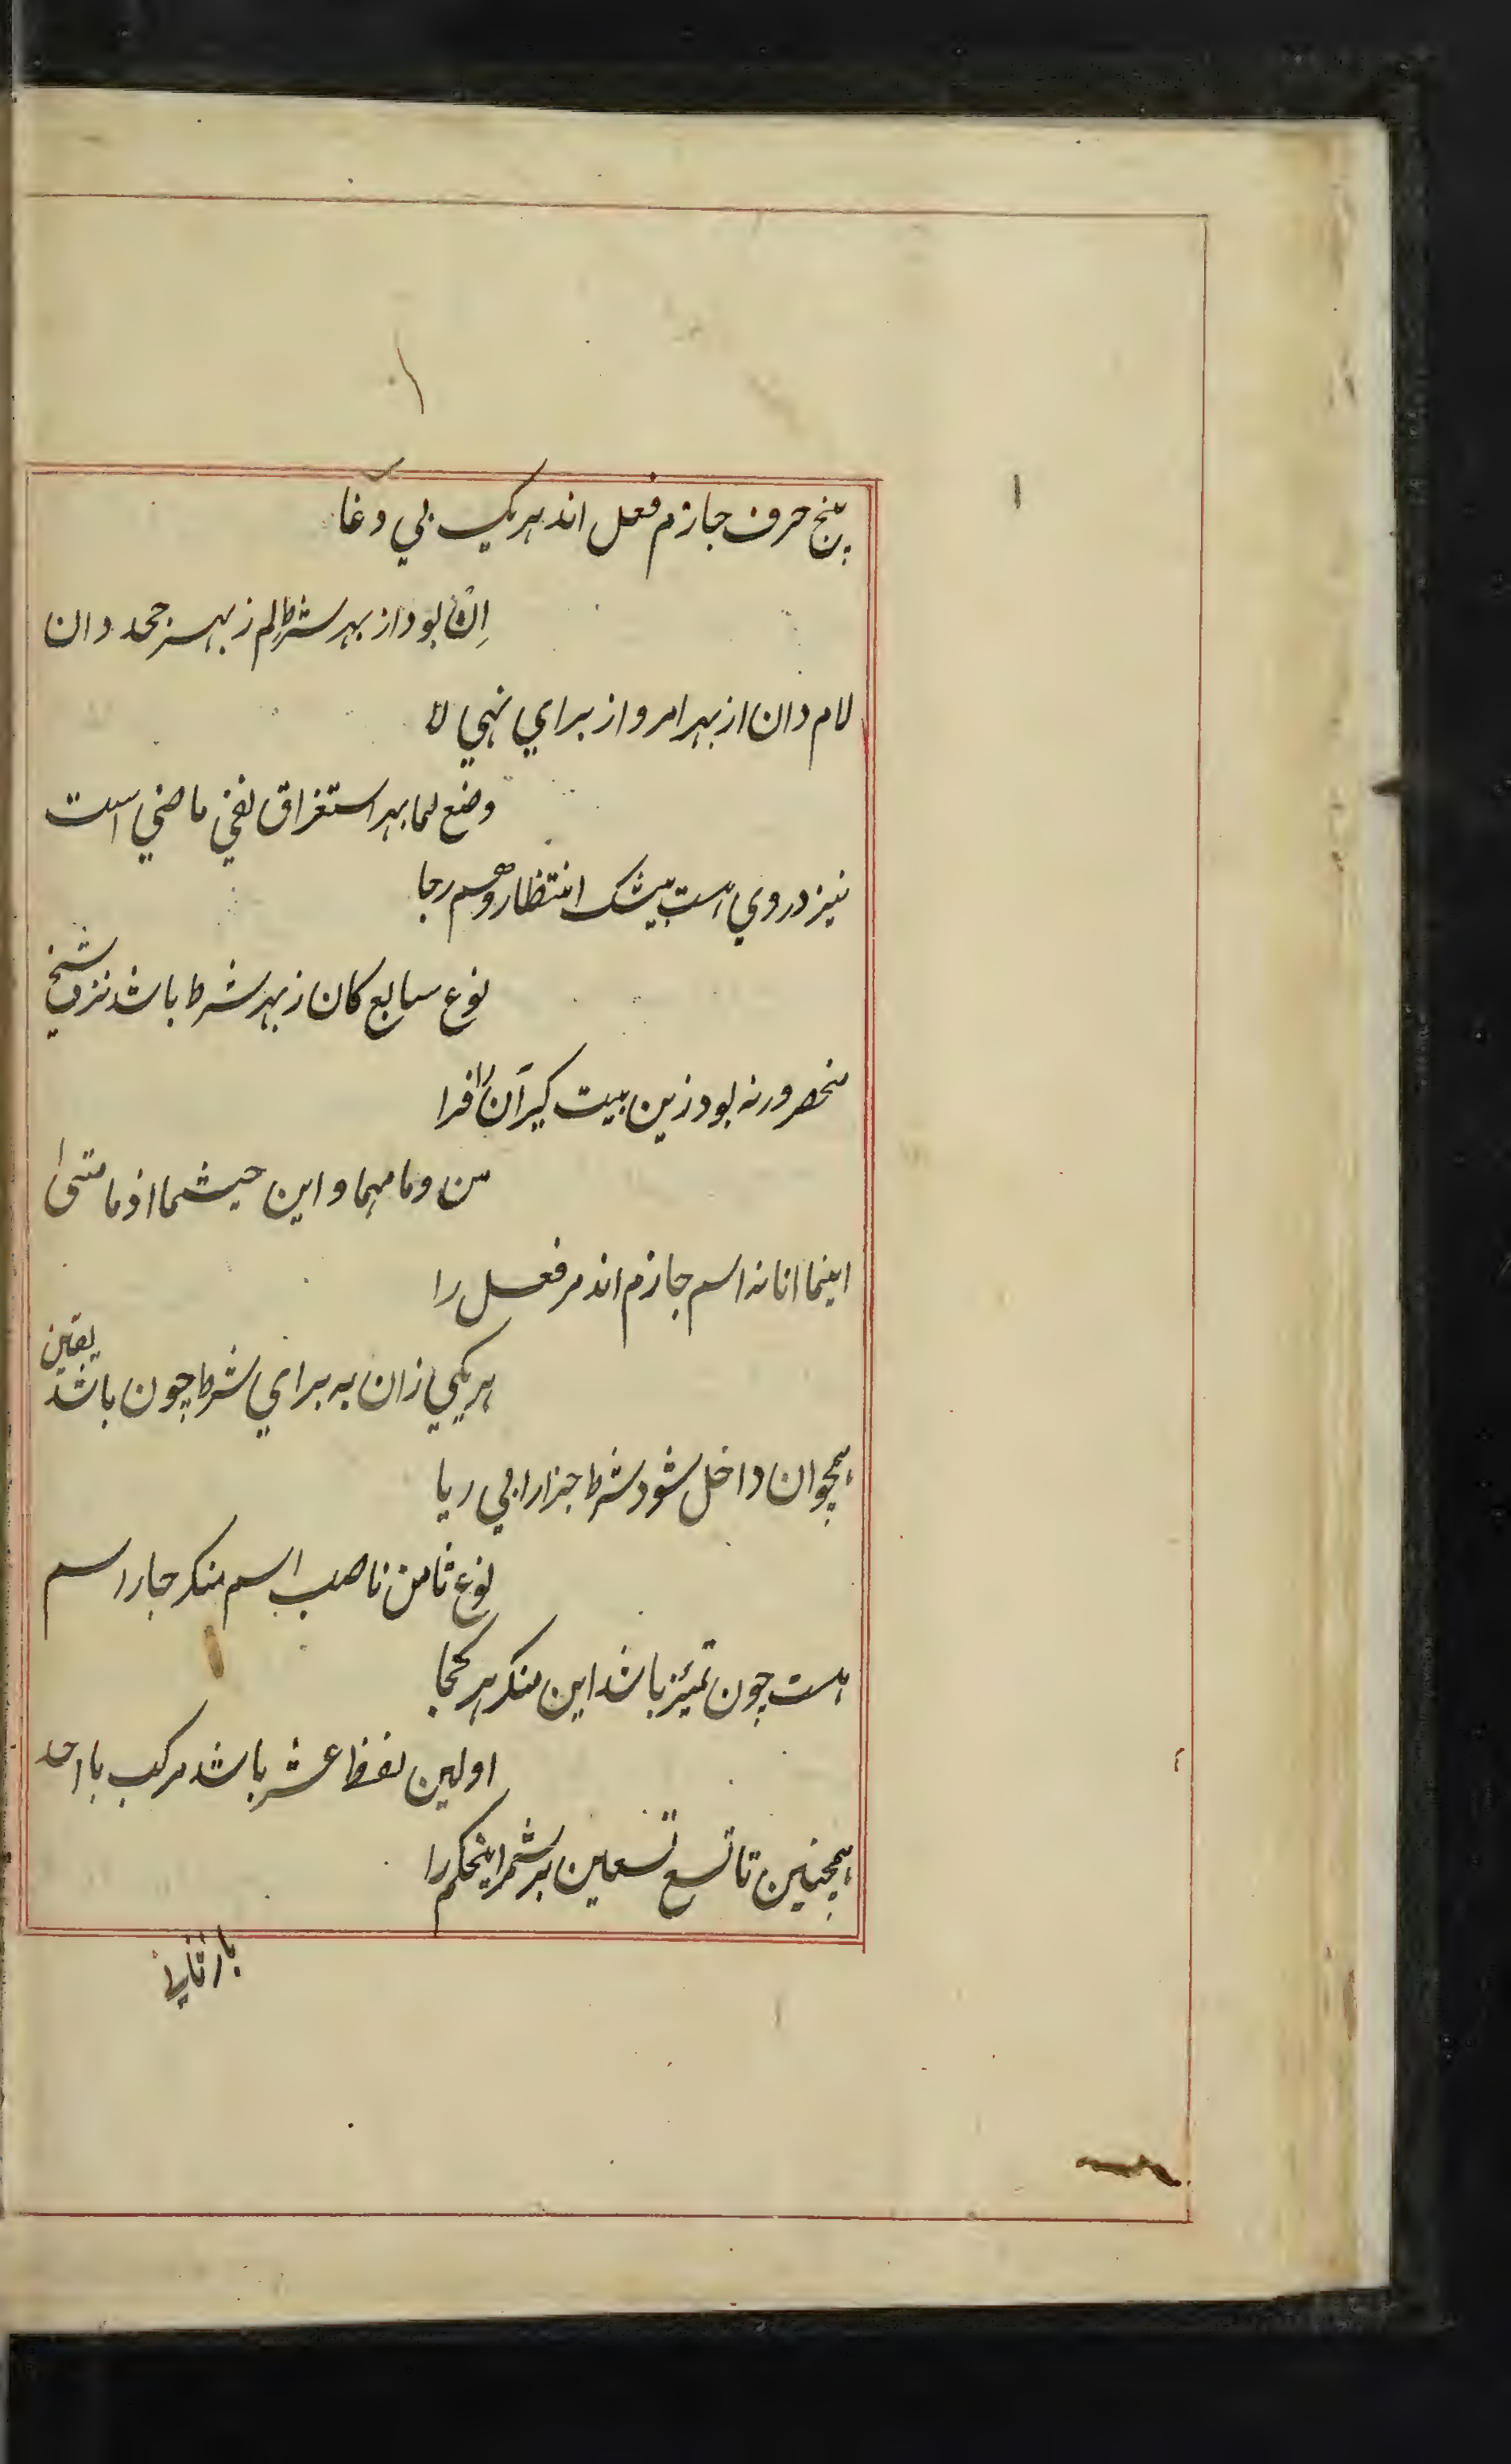 پنج حرف جازم فعل اند هریک بی دغا
اِنْ بود از بهر شرط لم ز بهر جحد دان
لام دان از بهر امر و از برای نهی لا
وضع لما بهر استغراق نفی ماضی است
نیز در وی هست بیشک انتظار و هم رجا
نوع سابع کان ز بهر شرط باشد نزد شیخ
منحصر ور نه بود زین بیت گیر آن را فرا
من و ما مهما و این حیثما اذما متی
اینما انا نه اسم جازم اند مر فعل را
هر یکی زان به برای شرط چون باشد یقین
همچو ان داخل شود شرط جزا را بی ریا
نوع ثامن ناصب اسم منکر چار اسم
هست چون تمیز باشد این منکر هر کجا
اولین لفظ عشر باشد مرکب با احد
همچنین تا تسع تسعین بر شمر اینحکم را
باز ثانی